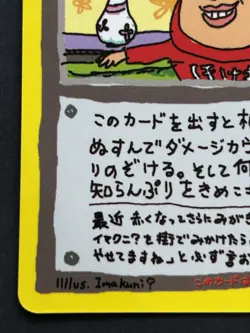 このカードを出すと
ぬすんでダメージカウ
りのぞける。そして何
知らんぷりをきめこ
最近 赤くなってさらにみがき
イマクニ?を街でみかけたら
やせてますね」と必ず言お
Illus. Imakuni?
このカードさ